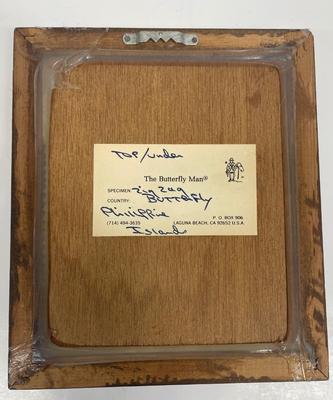 TOP/under
The Butterfly Man®
SPECIMEN: zig zag
COUNTRY: Butterfly
Phillippine
P. O. BOX 906
(714) 494-3635
LAGUNA BEACH, CA 92652 U.S.A.
Islands